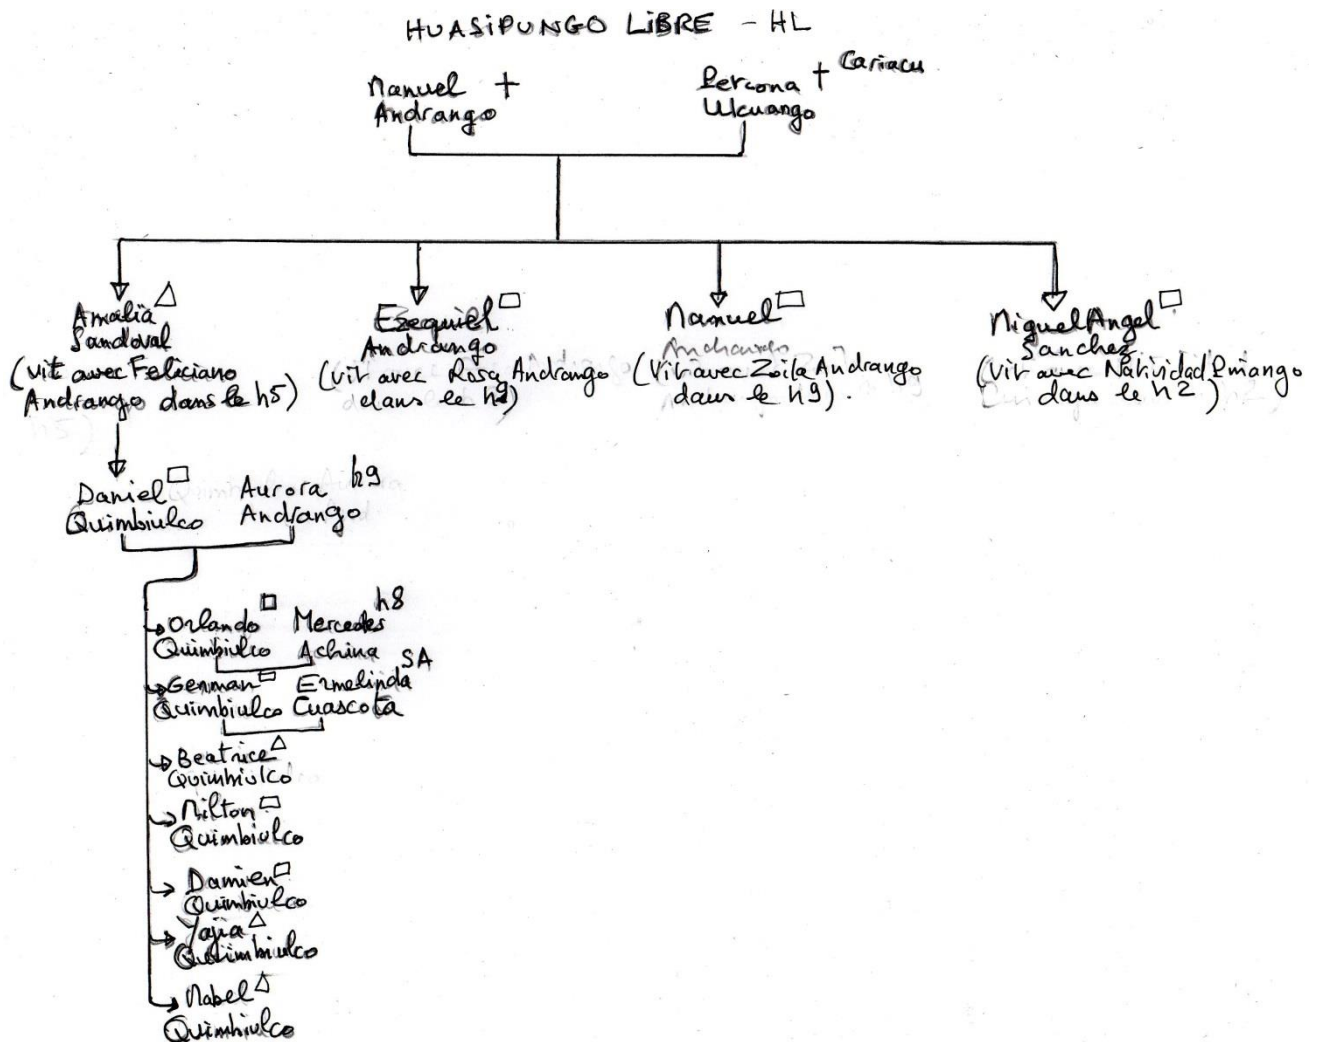 HUASIPUNGO LIBRE - HL
Manuel +
Andrango
Percona + Cariacu
Ulcuango
Amalia
Sandoval
(vit avec Feliciano
Andrango dans le h5)
Ezequiel
Andrango
(vit avec Rosa Andrango
dans le h9)
Manuel
Andrango
(Vit avec Zoila Andrango
dans le h9).
Miguel Angel
Sanchez
(Vit avec Natividad
dans le h2)
Daniel
Quimbiulco
Aurora h9
Andrango
Orlando
Quimbiulco
Mercedes h8
Achina
German
Quimbiulco
Ermelinda SA
Cuascota
Beatrice
Quimbiulco
Milton
Quimbiulco
Damien
Quimbiulco
Yajia
Quimbiulco
Mabel
Quimbiulco